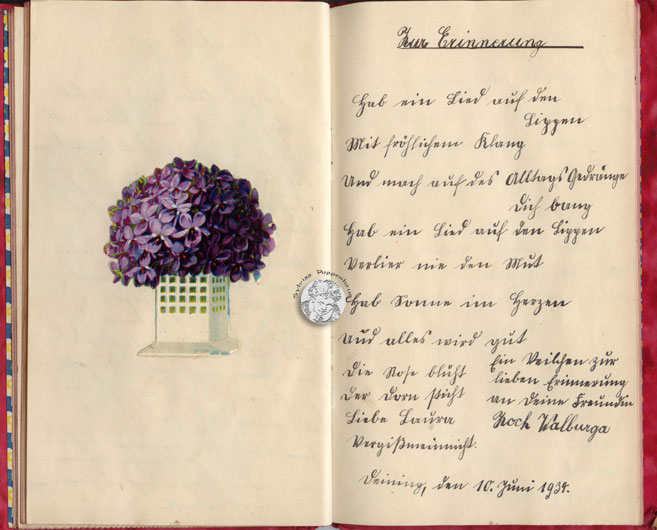 Zur Erinnerung
Hab ein Lied auf den
Lippen
Mit fröhlichem Klang
Und mach auch des Alltags Gedränge
Dich bang
Hab ein Lied auf den Lippen
Verlier nie den Mut
Hab Sonne im Herzen
Und alles wird gut
Die Rose blüht
der Dorn sticht
Liebe Laura
Vergißmeinnicht.
Ein Veilchen zur
lieben Erinnerung
an Deine Freundin
Koch Walburga
Deining, den 10. Juni 1934.